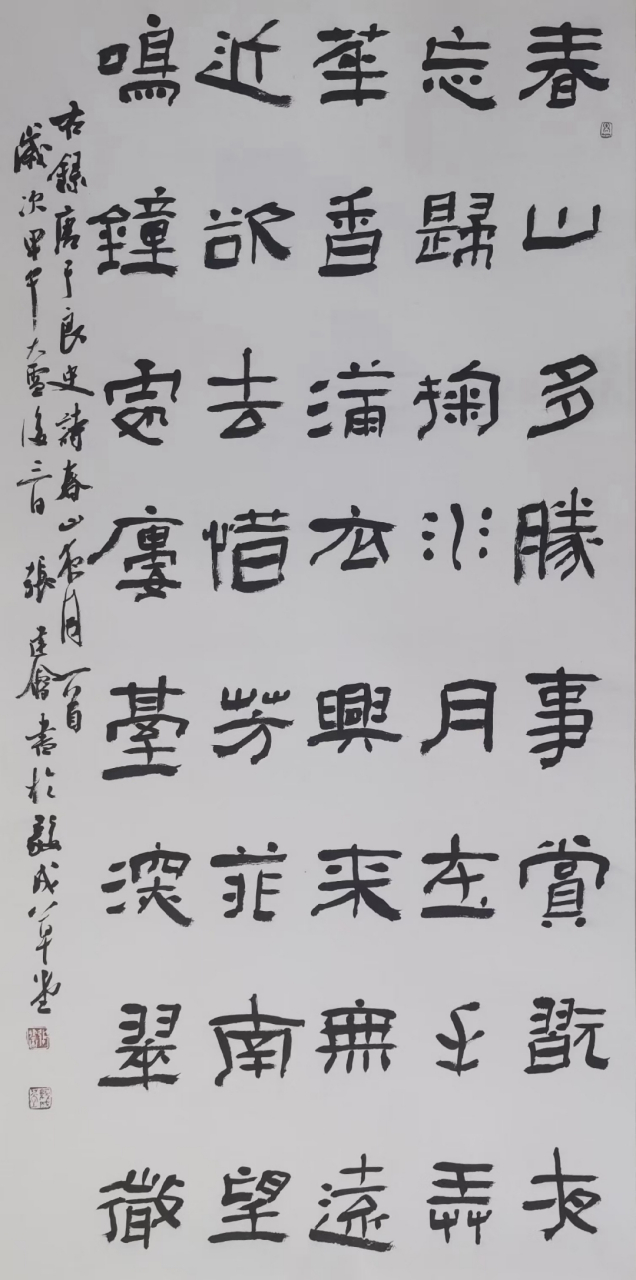 春山多勝事賞翫夜
忘歸掬水月在手弄
華香滿衣興來無遠
近欲去惜芳菲南望
鳴鐘處廔臺深翠微
右錄唐于良史詩春山夜月一首
歲次甲午大雪後三日 張建會書於成草堂